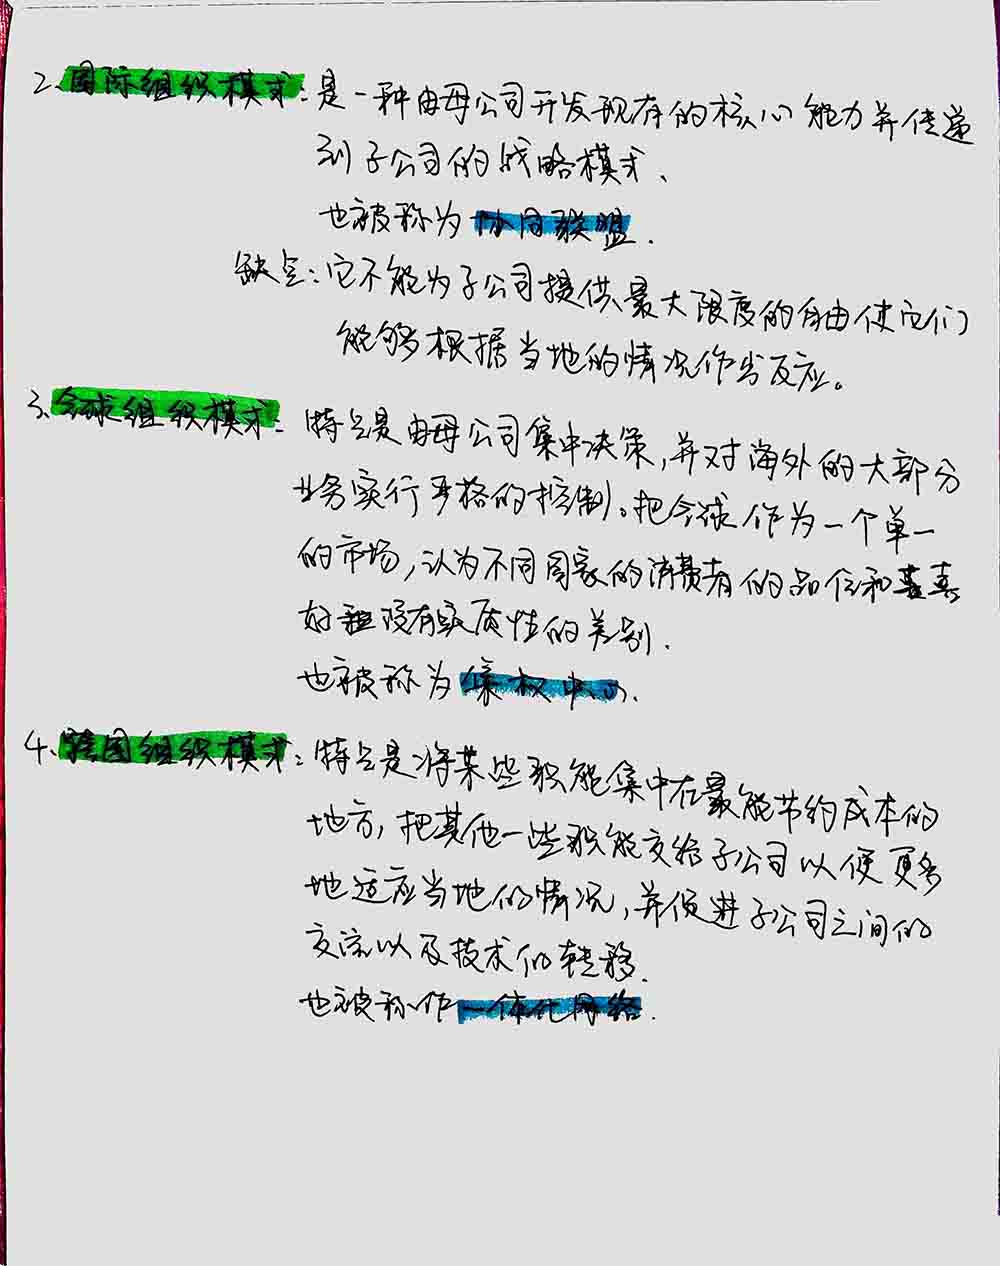 2、国际组织模式：是一种由母公司开发现存的核心能力并传递
到子公司的战略模式、
也被称为 协同联盟.
缺点：它不能为子公司提供最大限度的自由使它们
能够根据当地的情况作出反应。
3、全球组织模式：特点是由母公司集中决策，并对海外的大部分
业务实行严格的控制。把全球作为一个单一
的市场，认为不同国家的消费者的品位和喜
好没有实质性的差别.
也被称为 集权中心.
4、跨国组织模式：特点是将某些职能集中在最能节约成本的
地方，把其他一些职能交给子公司以便更多
地适应当地的情况，并促进子公司之间的
交流以及技术的转移.
也被称作一体化网络.